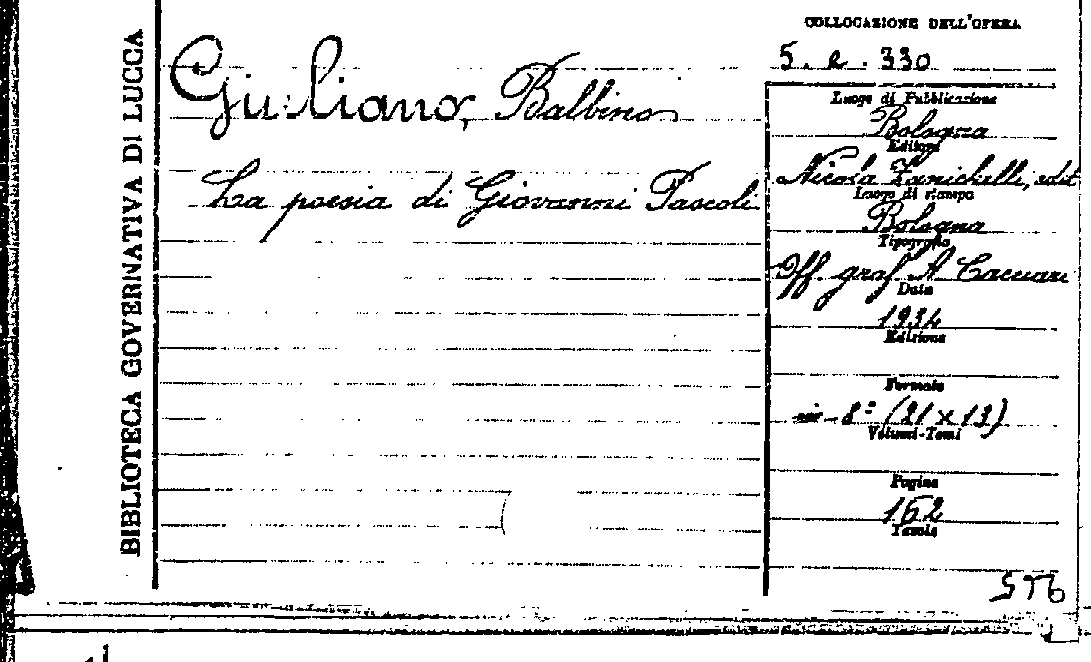 BIBLIOTECA GOVERNATIVA DI LUCCA
Giuliano, Balbino
La poesia di Giovanni Pascoli
COLLOCAZIONE DELL'OPERA
5. e. 330
Luogo di Pubblicazione
Bologna
Editore
Nicola Zanichelli, edit
Luogo di stampa
Bologna
Tipografia
Off. graf. A. Cacciari
Data
1934
Edizione
Formato
in-8° (21 x 13)
Volumi-Tomi
Pagine
162
Tavole
576